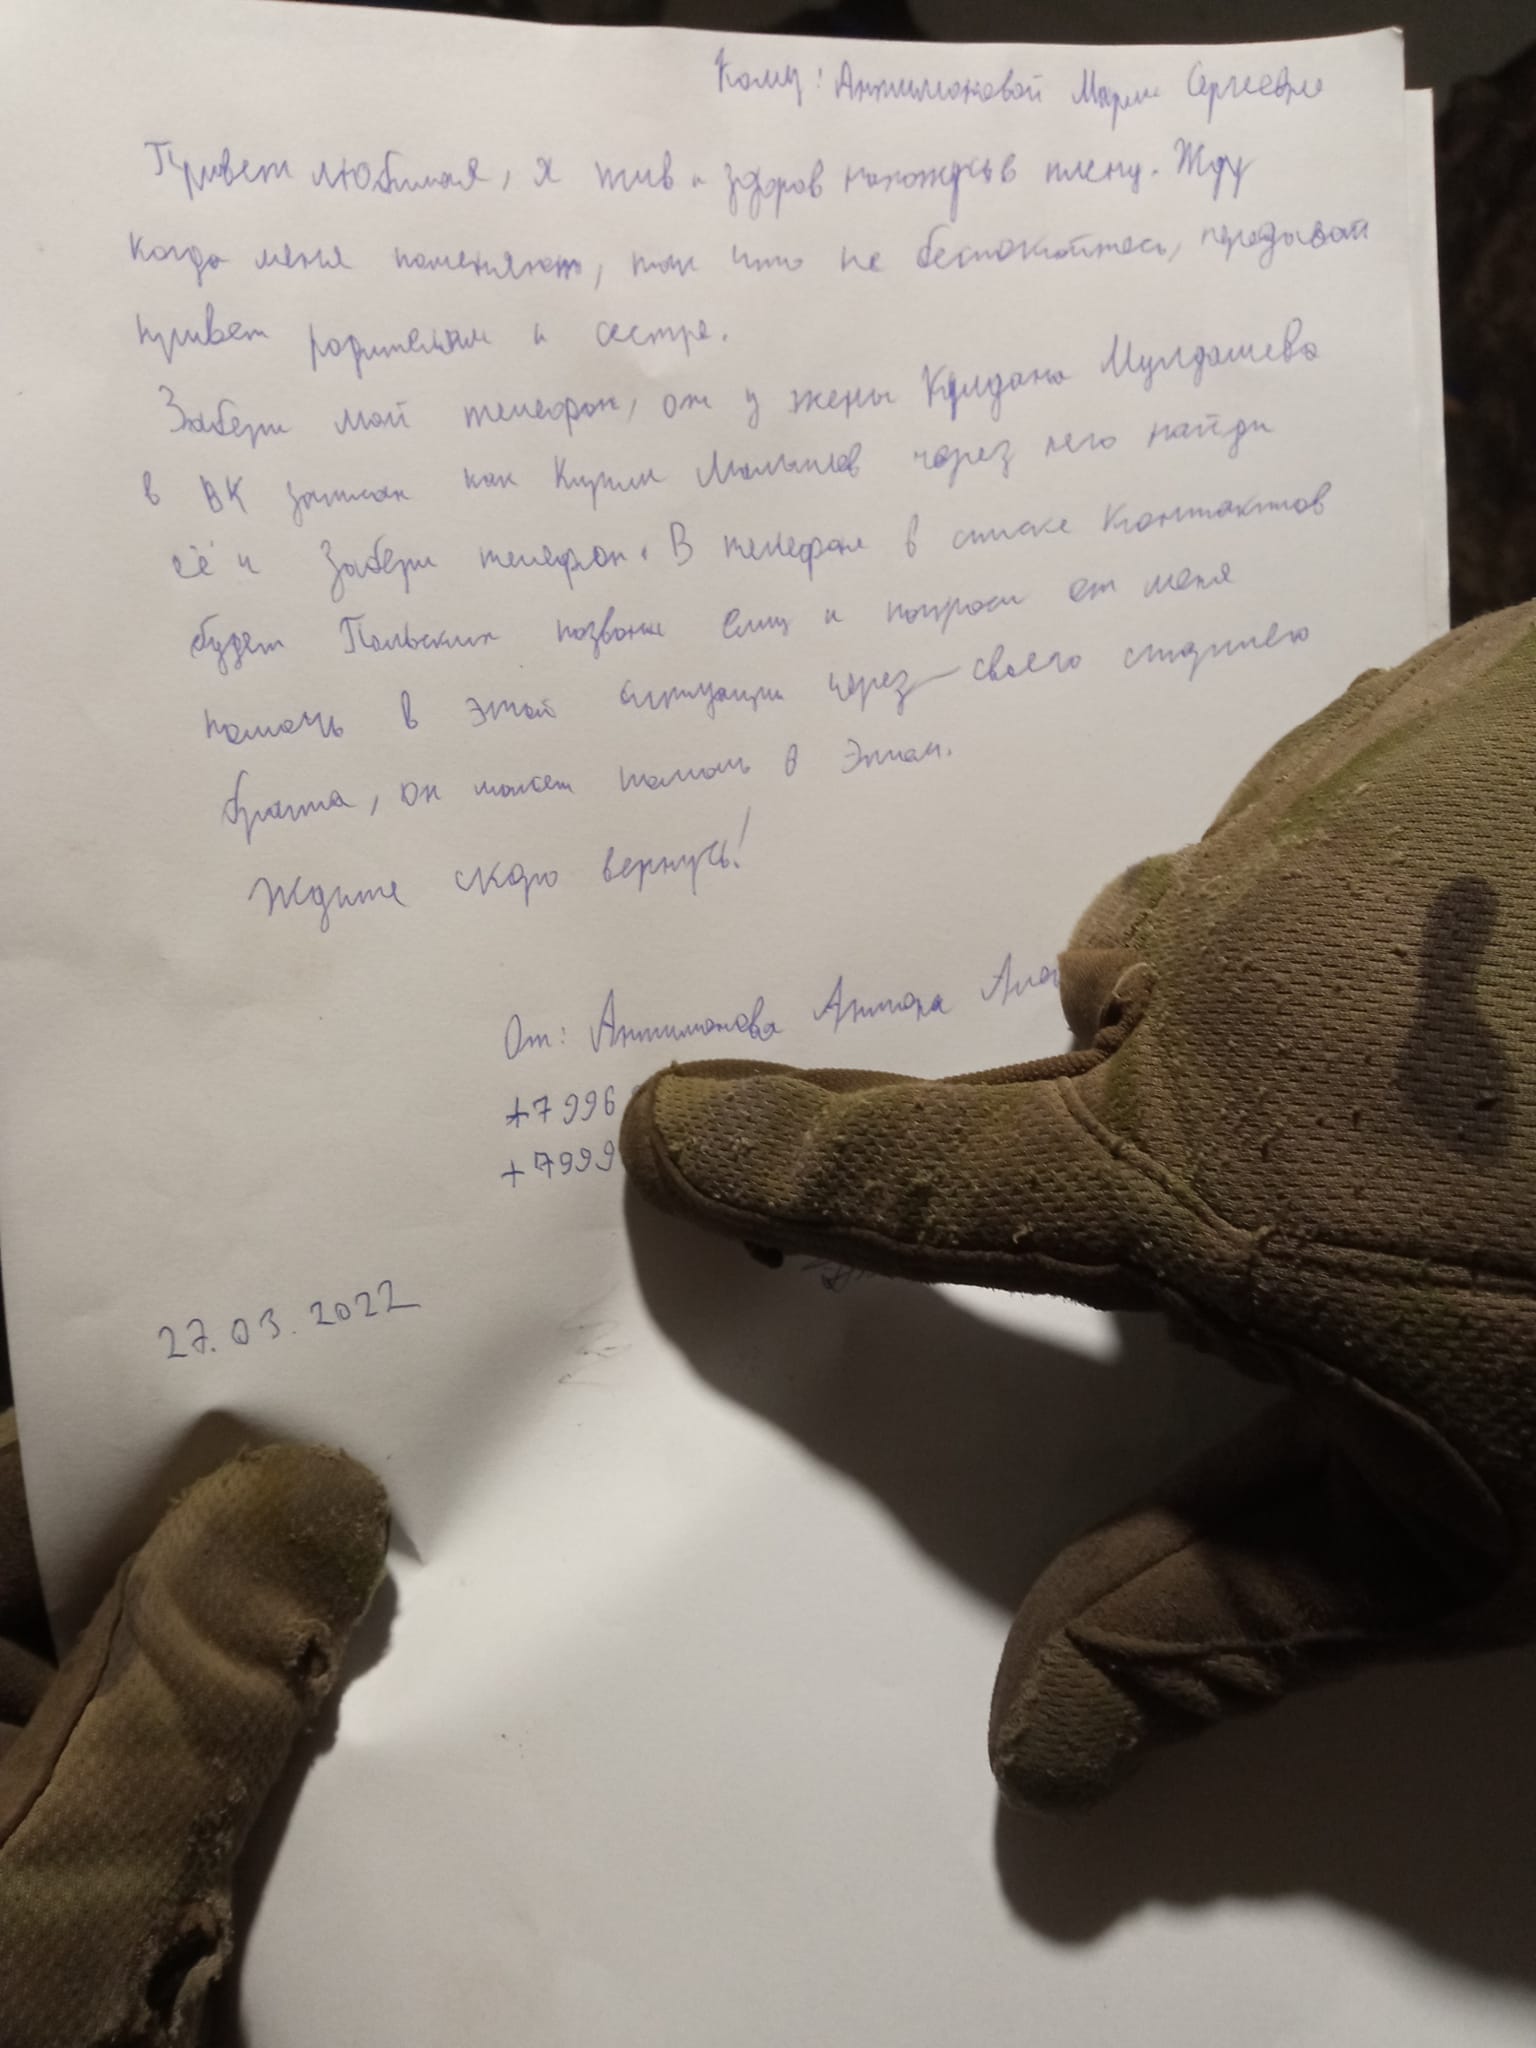 Кому: Антимоновой Марии Сергеевне
Привет любимая, я жив и здоров нахожусь в плену. Жду
когда меня поменяют, так что не беспокойтесь, передавай
привет родителям и сестре.
Забери мой телефон, он у жены Кулдана Мулдашева
в ВК записан как Кирилл через него найди
её и забери телефон. В телефоне в списке контактов
будет Польских позвони ему и попроси от меня
помочь в этой ситуации через своего старшего
брата, он может помочь в этом.
Ждите скоро вернусь!
От: Антимонова Антона
+7 996
+7999
27.03.2022